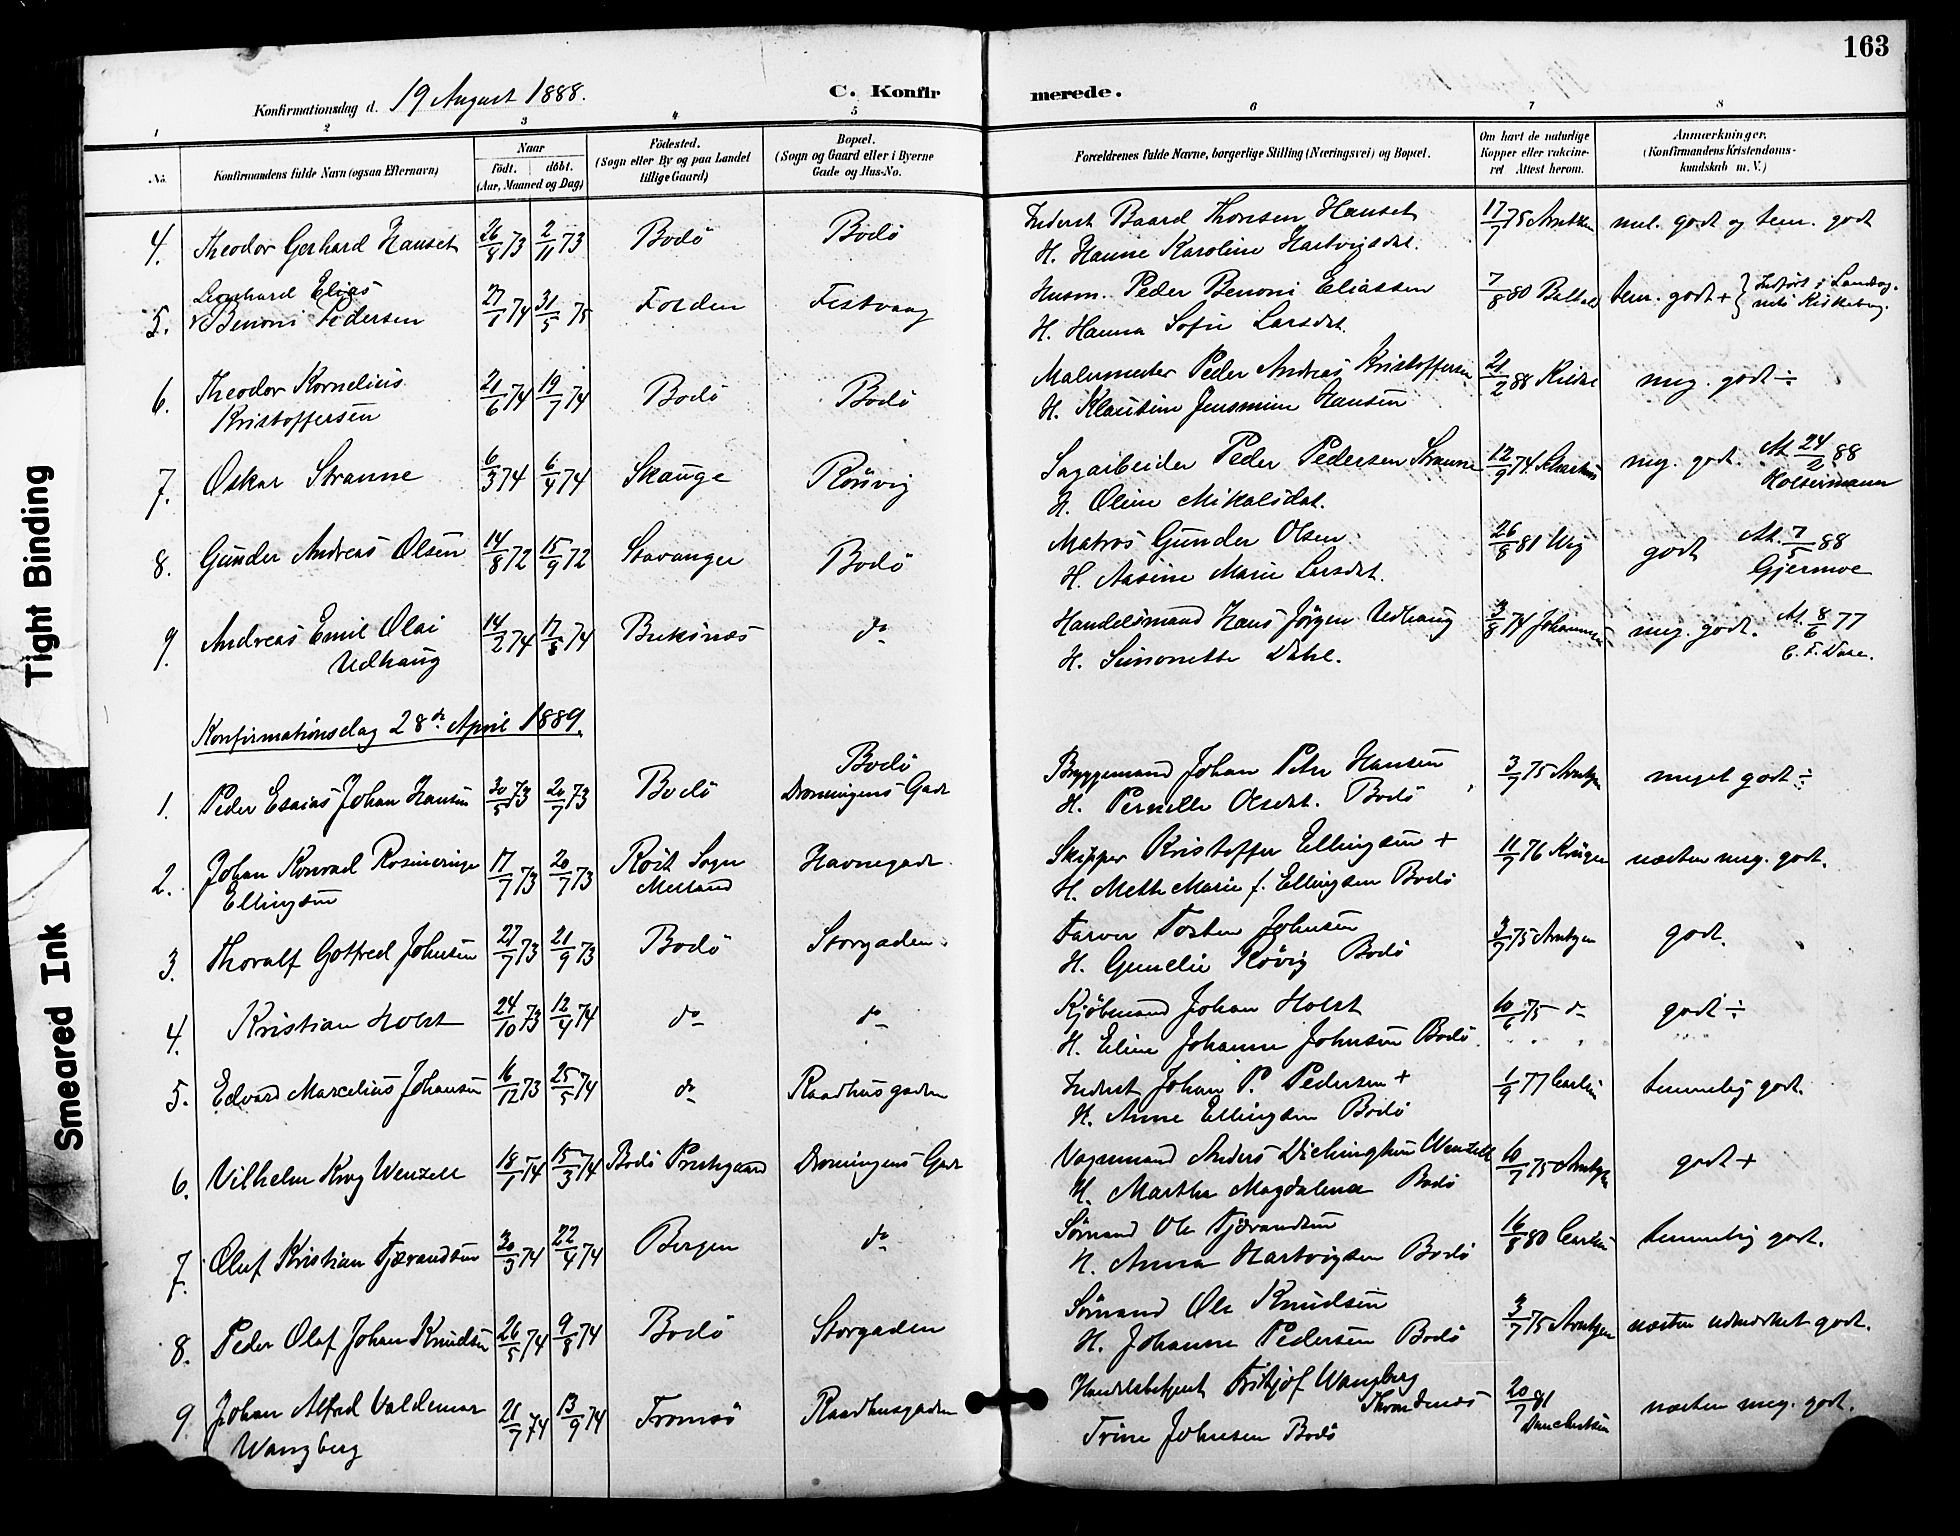 163
Konfirmationsdag d. 19 August 1888.
C. Konfirmerede.
1 2 3 4 5 6 7 8
No.
Konfirmandens fulde Navn (ogsaa Efternavn)
Naar
født. døbt.
(Aar, Maaned og Dag)
Födested.
(Sogn eller By og paa Landet
tillige Gaard)
Bopæl.
(Sogn og Gaard eller i Byerne
Gade og Hus-No.
Forældrenes fulde Navne, borgerlige Stilling (Næringsvei) og Bopæl.
Om havt de naturlige
Kopper eller vakcine-
ret Attest herom.
Anmærkninger.
(Konfirmandens Kristendoms-
kundskab m. V.)
4. Theodor Gerhard Hanset 26/8 73 2/11 73 Bodö Bodö Inderst Baard Thorsen Hanset 17/7 75 mel. godt og tem. godt
H. Hanne Karoline Hartvigsdat.
Leonhard Elias
5. Benoni Pedersen 27/7 74 31/5 75 Folden Festvaag Husm. Peder Benoni Eliassen 7/8 80 tem. godt +
H. Hanna Sofie Larsdt.
6. Theodor Kornelius 21/6 74 19/7 74 Bodö Bodö Malermester Peder Andreas Kristoffersen 21/2 88 meg. godt ÷
Kristoffersen H. Klausine Jensmine Hansen
7. Oskar Stranne 6/3 74 6/4 74 Skauge Rönvig Sagarbeider Peder Pedersen Stranne 12/9 74 meg. godt. At. 24/2 88
H. Oline Mikalsdat. Koltermann
8. Gunder Andreas Olsen 14/8 72 15/9 72 Stavanger Bodö Matros Gunder Olsen 26/8 81 godt At. 7/5 88
H. Aasine Marie Larsdt. Gjermoe
9. Andreas Emil Olai 14/2 74 17/5 74 Buksnæs do Handelsmand Hans Jörgen Udhaug 3/8 74 Johannesen meg. godt. At. 8/6 77
Udhaug H. Simonette Dahl.
Konfirmationsdag 28de April 1889.
Bodö
1. Peder Esaias Johan Hansen 30/5 73 20/7 73 Bodö Dronningens Gade Bryggemand Johan Peter Hansen 3/7 75 Arntzen meget godt ÷
H. Pernille Olsdat. Bodö
2. Johan Konrad Rosineringe 17/7 73 20/7 73 Röst Sogn Havnegade Skipper Kristoffer Ellingsen + 11/7 76 Krüger næsten meg. godt.
Ellingsen H. Mette Marie f. Ellingsen Bodö
3. Thoralf Gotfred Johnsen 27/7 73 21/9 73 Bodö Storgaden Farver Tosten Johnsen 3/7 75 Arntzen godt.
H. Gunelie Rövig Bodö
4. Kristian Holst 24/10 73 12/4 74 do do Kjöbmand Johan Holst 10/6 75 do godt ÷
H. Eline Johanne Johnsen Bodö
5. Edvard Marcelius Johansen 16/12 73 25/5 74 do Raadhusgaden Inderst Johan P. Pedersen + 1/9 77 temmelig godt.
H. Anne Ellingsen Bodö
6. Vilhelm Krog Wenzell 18/1 74 15/3 74 Bodö Prestegaard Dronningens Gade Vognmand Anders Wenzell 10/7 75 Arntzen godt +
H. Marthe Magdalena Bodö
7. Oluf Kristian Tjærandsen 20/3 74 22/4 74 Bergen do Sömand Ole Tjærandsen 16/8 80 temmelig godt.
H. Anna Hartvigsen Bodö
8. Peder Olaf Johan Knudsen 26/5 74 9/8 74 Bodö Storgaden Sömand Ole Knudsen 3/7 75 Arntzen næsten udmærket godt.
H. Johanne Pedersen Bodö
9. Johan Alfred Valdemar 21/7 74 13/9 74 Tromsö Raadhusgaden Handelsbetjent Frithjof Wangberg 20/7 81 næsten meg. godt.
Wangberg Trine Johnsen Bodö
Tight Binding
Smeared Ink